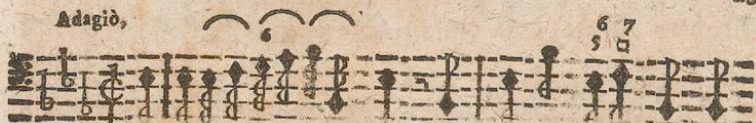 Adagiò,
6 6 7
5